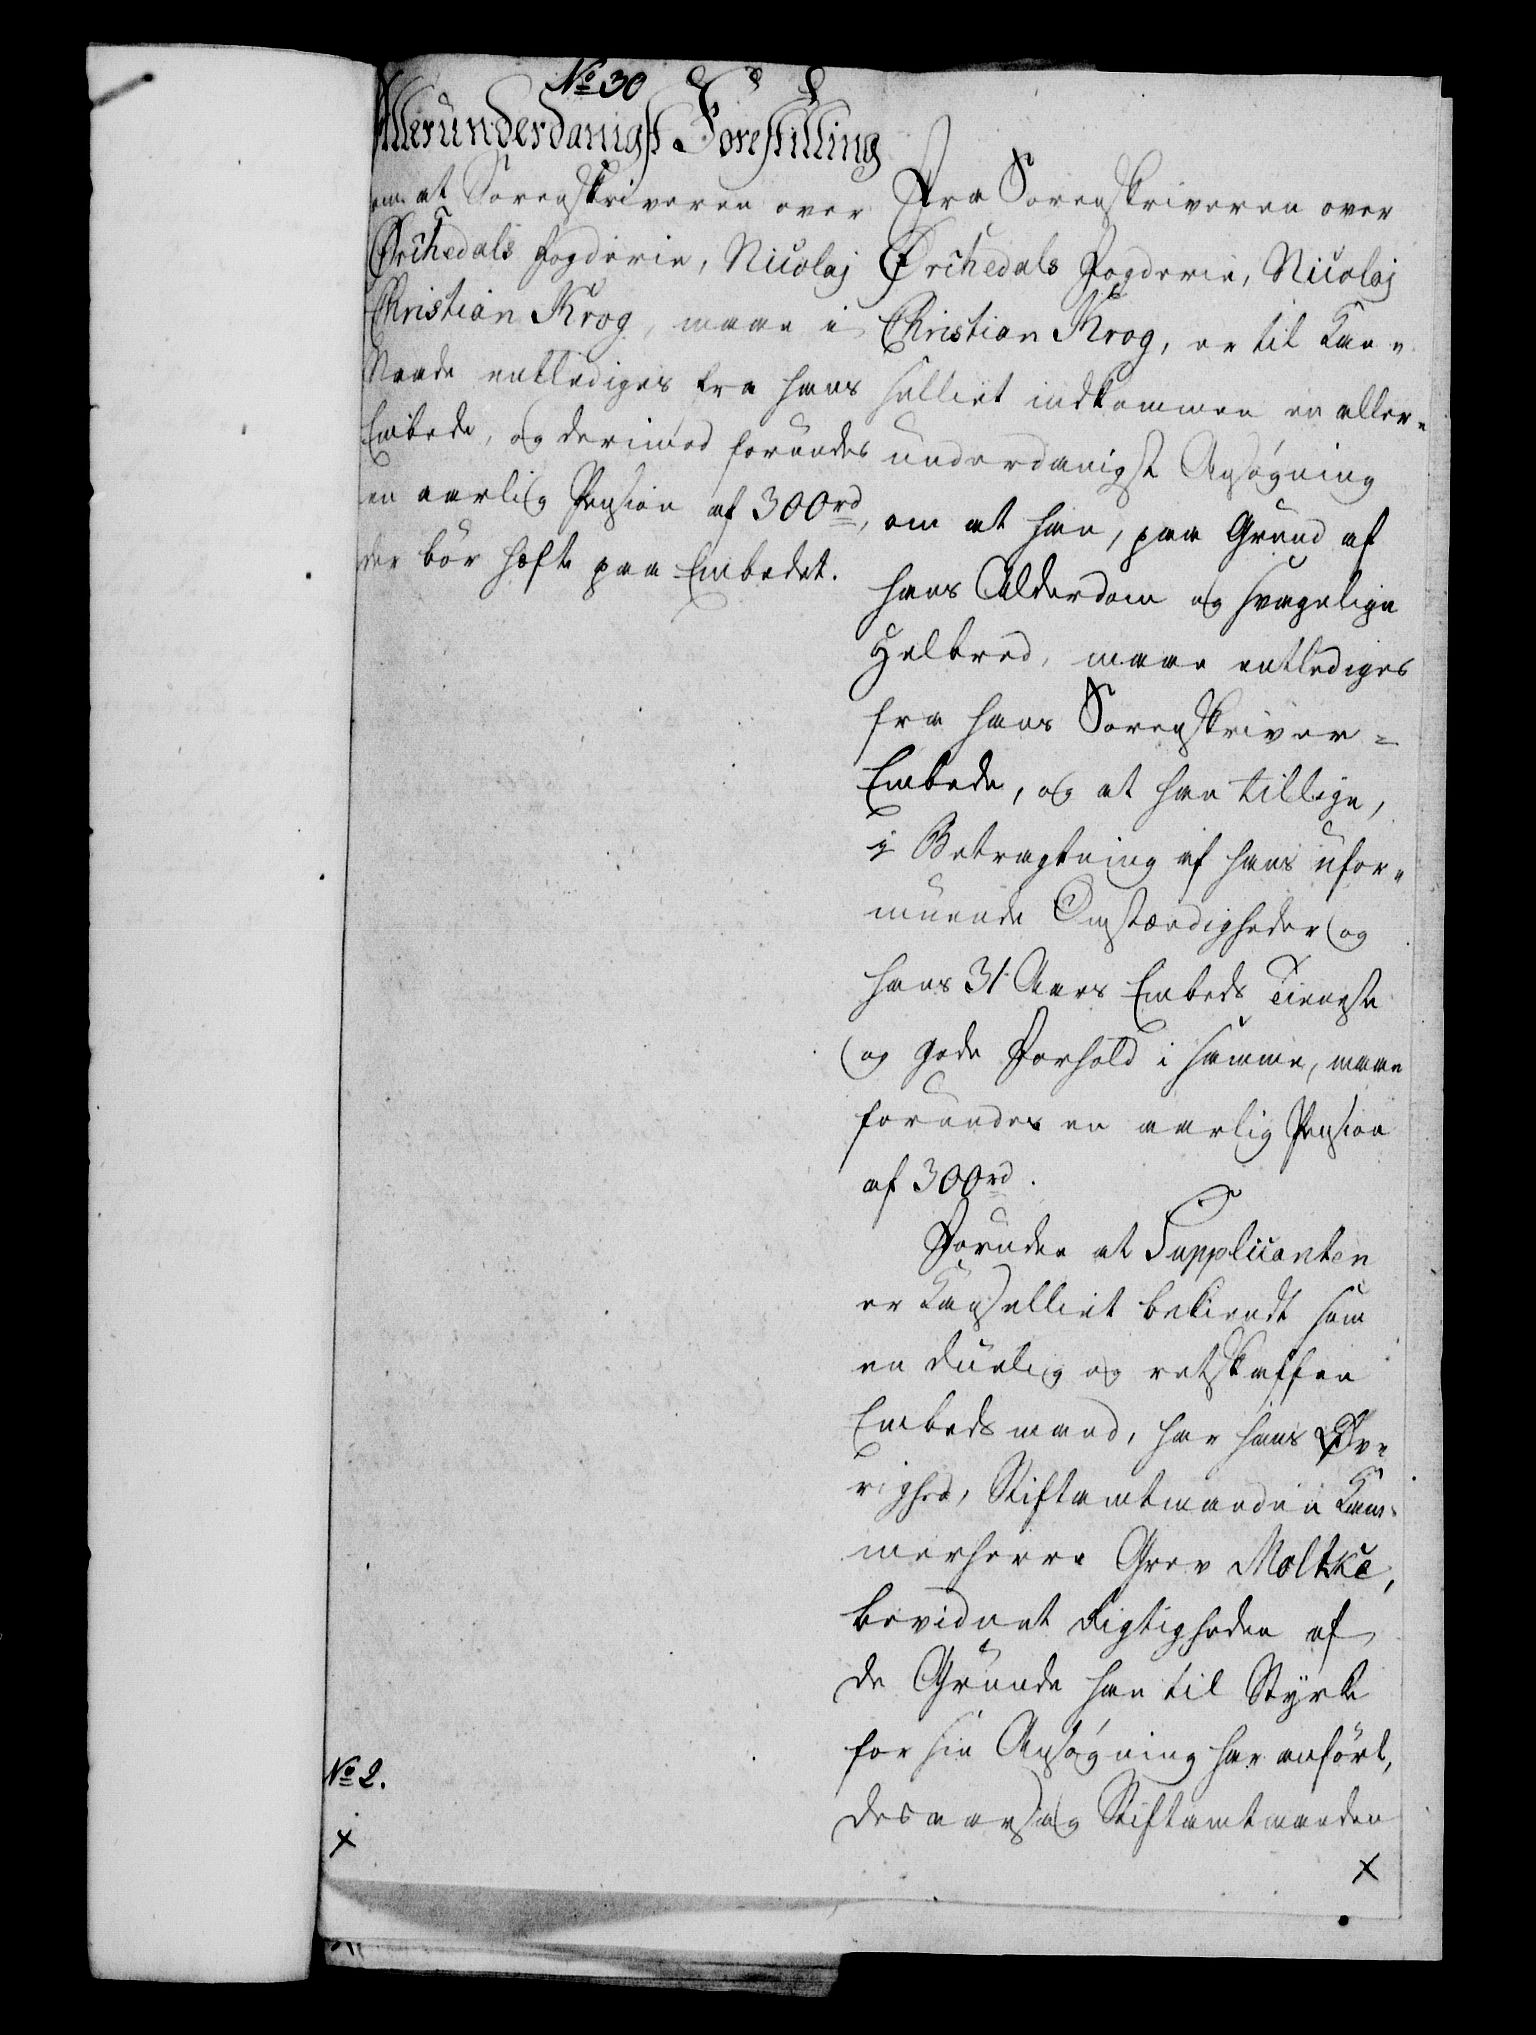 No 30
Allerunderdanigst Forestilling
om at Sorenskriveren over
Ørchedals Fogderie, Nicolaj
Christian Krog, maae i
Naade entlediges fra hans
Embede, og derimod forundes
en aarlig Pension af 300rd,
der bör hefte paa Embedet.
Fra Sorenskriveren over
Ørchedals Fogderie, Nicolaj
Christian Krog, er til Kan-
selliet indkommen en aller-
underdanigst Ansøgning
om at han, paa Grund af
hans Alderdom og svagelige
Helbred, maae entlediges
fra hans Sorenskriver=
Embede, og at han tillige,
i Betragtning af hans ufor-
muende Omstændigheder og
hans 31 Aars Embeds Tieneste
og gode Forhold i samme, maae
forundes en aarlig Pension
af 300rd.
Foruden at Supplicanten
er Kanselliet bekiendt som
en duelig og retskaffen
Embedsmand, har hans Øv-
righed, Stiftamtmanden Kam-
merherre Grev Moltke,
bevidnet Rigtigheden af
de Grunde han til Styrke
for sin Ansøgning har anfört,
desaarsag Stiftamtmanden
No 2.
x
x